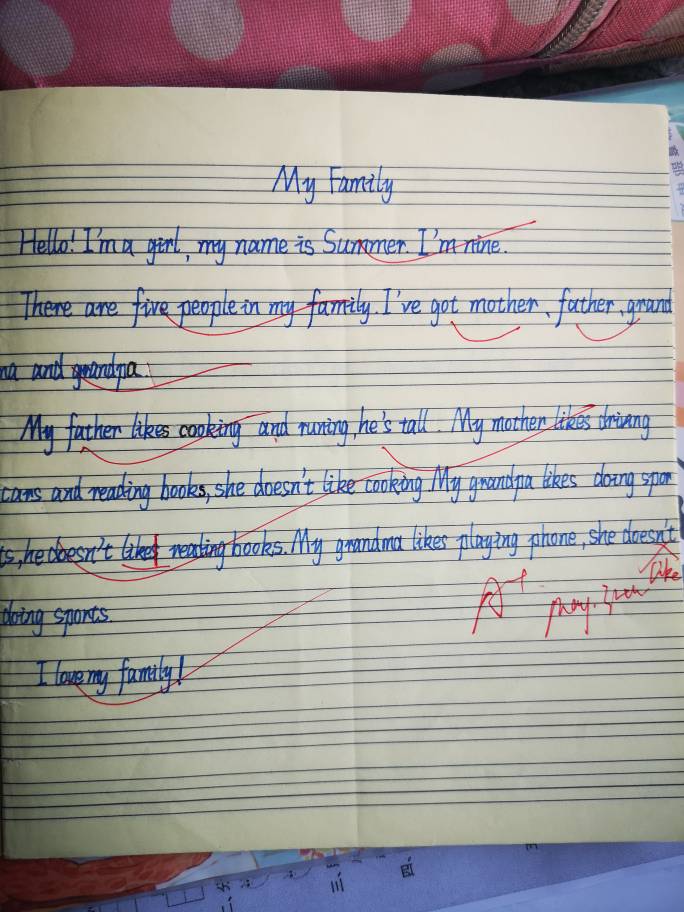 My Family
Hello! I'm a girl, my name is Summer. I'm nine.
There are five people in my family. I've got mother、father、grand
ma and grandpa.
My father likes cooking and runing, he's tall. My mother likes driving
cars and reading books, she doesn't like cooking. My grandpa likes doing spor
ts, he doesn't likes reading books. My grandma likes playing phone, she doesn't
like
doing sports.
A+
I love my family!